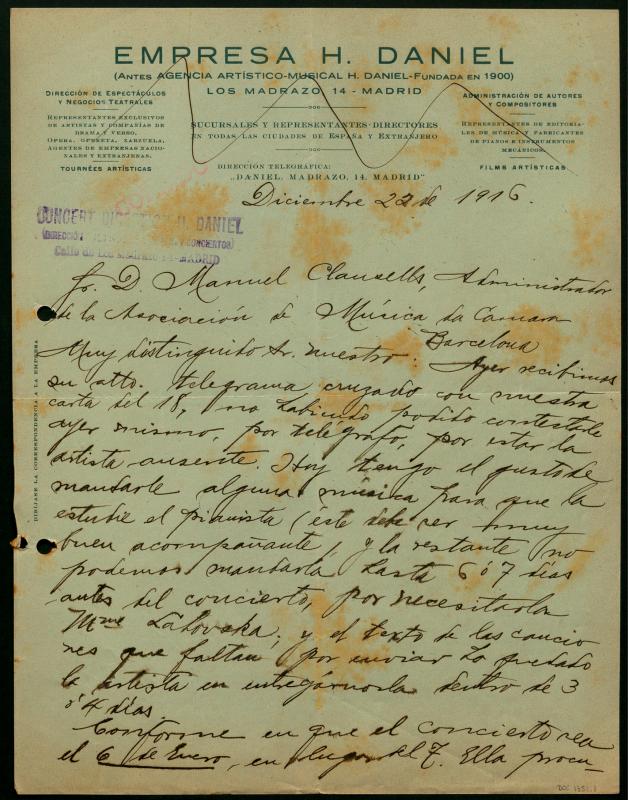 EMPRESA H. DANIEL
(ANTES AGENCIA ARTÍSTICO-MUSICAL H. DANIEL-FUNDADA EN 1900)
LOS MADRAZO, 14 - MADRID
DIRECCIÓN DE ESPECTÁCULOS
Y NEGOCIOS TEATRALES
REPRESENTANTES EXCLUSIVOS
DE ARTISTAS Y COMPAÑÍAS DE
DRAMA Y VERSO,
OPERA, OPERETA, ZARZUELA,
AGENTES DE EMPRESAS NACIO-
NALES Y EXTRANJERAS.
TOURNÉES ARTÍSTICAS
SUCURSALES Y REPRESENTANTES-DIRECTORES
EN TODAS LAS CIUDADES DE ESPAÑA Y EXTRANJERO
DIRECCIÓN TELEGRÁFICA:
"DANIEL, MADRAZO, 14, MADRID"
ADMINISTRACIÓN DE AUTORES
Y COMPOSITORES
REPRESENTANTES DE EDITORIA-
LES DE MÚSICA Y FABRICANTES
DE PIANOS E INSTRUMENTOS
MECÁNICOS.
FILMS ARTÍSTICAS
Diciembre 22 de 1916.
CONCERT DIRECTION H. DANIEL
(DIRECCIÓN Y CONCIERTOS)
Calle de Los Madrazo 14-MADRID
Sr. D. Manuel Clausells, Administrador
de la Asociación de Música da Camara
Barcelona
Muy distinguido Sr. nuestro: Ayer recibimos
su atto. telegrama cruzado con nuestra
carta del 18, no habiendo podido contestarle
ayer mismo, por telégrafo, por estar la
artista ausente. Hoy tengo el gusto de
mandarle alguna música para que la
estudie el pianista (éste debe ser muy
buen acompañante), y la restante no
podemos mandarla hasta 6 ó 7 días
antes del concierto, por necesitarla
Mme Lahovska; y el texto de las cancio
nes que faltan por enviar ha quedado
la artista en entregárnosla dentro de 3
ó 4 días
Conforme en que el concierto sea
el 6 de Enero, en lugar del 7. Ella procu-
DIRÍJASE LA CORRESPONDENCIA A LA EMPRESA
DOC 1351.1